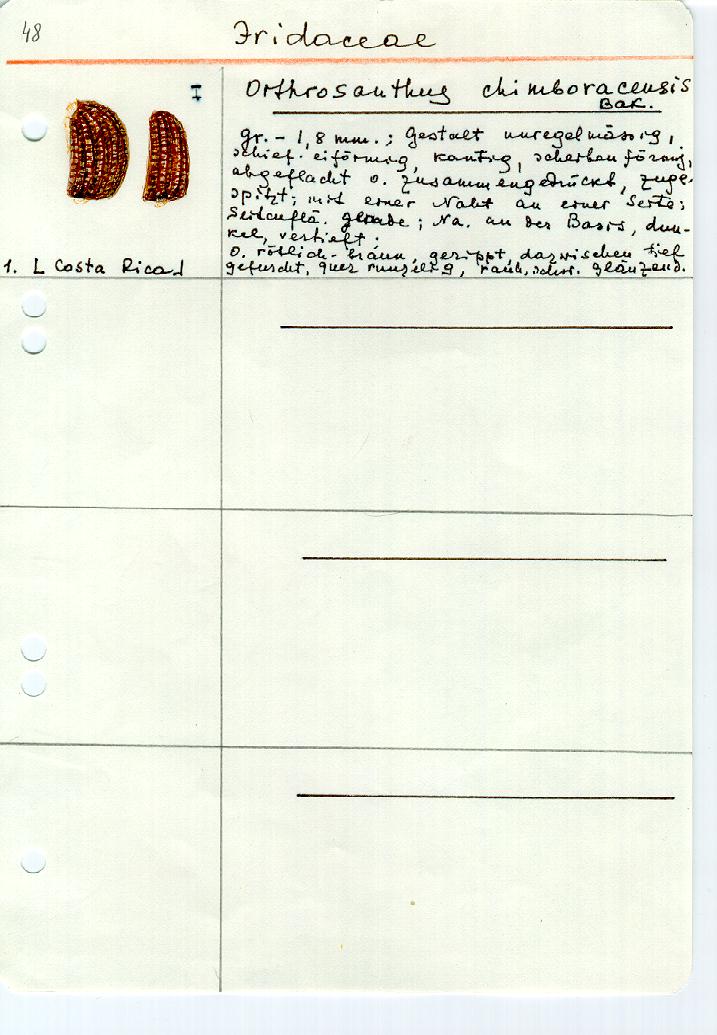 48
Iridaceae
I
Orthrosanthus chimboracensis
Bak.
gr. - 1,8 mm.; Gestalt unregelmässig,
schief. eiförmig, kantig, scherbenförmig,
abgeflacht o. zusammengedrückt, zuge-
spitzt; mit einer Naht an einer Seite;
Seitenflä. gerade; Na. an der Basis, dun-
kel, vertieft;
O. rötlich-braun, gerippt, dazwischen tief
gefurcht, quer runzelig, rauh, schw. glänzend.
1. L Costa Rica